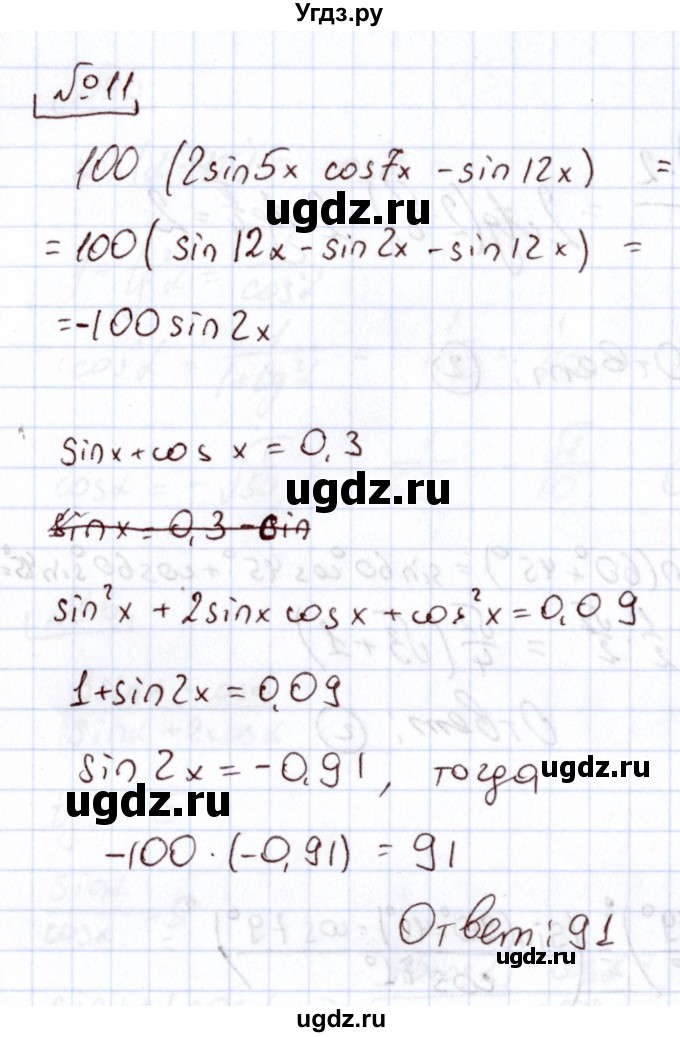 Угдз.ру
№11
100 (2sin5x cos7x - sin12x) =
ugdz.ru
= 100 (sin12x - sin2x - sin12x) =
= -100sin2x
sinx + cos x = 0,3
ugdz.ru
sin x = 0,3 - sin
sin²x + 2sinx cosx + cos²x = 0,09
1 + sin2x = 0,09
sin2x = -0,91, тогда
ugdz.ru
ugdz.ru
-100 · (-0,91) = 91
Ответ: 91
ugdz.ru
ugdz.ru